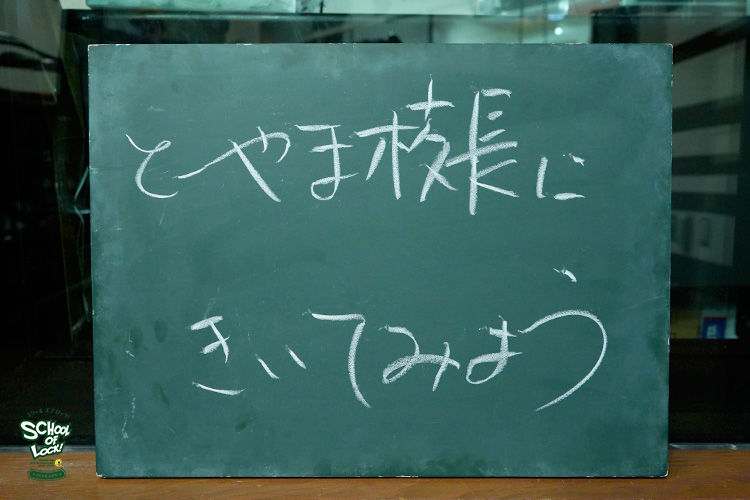 とやま校長に
きいてみよう
SCHOOL
OF
LOCK!